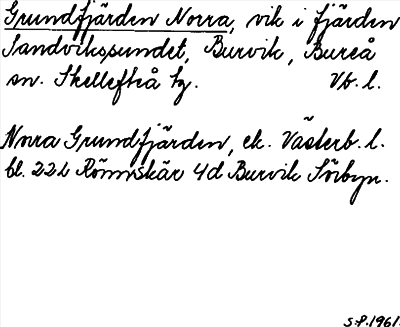 Grundfjärden Norra, vik i fjärden
Sandvikssundet, Burvik, Bureå
sn. Skellefteå tg. Vb. l.
Norra Grundfjärden, ek. Västerb. l.
bl. 22 L Rönnskär 4d Burvik Sörbyn.
S.P. 1961.